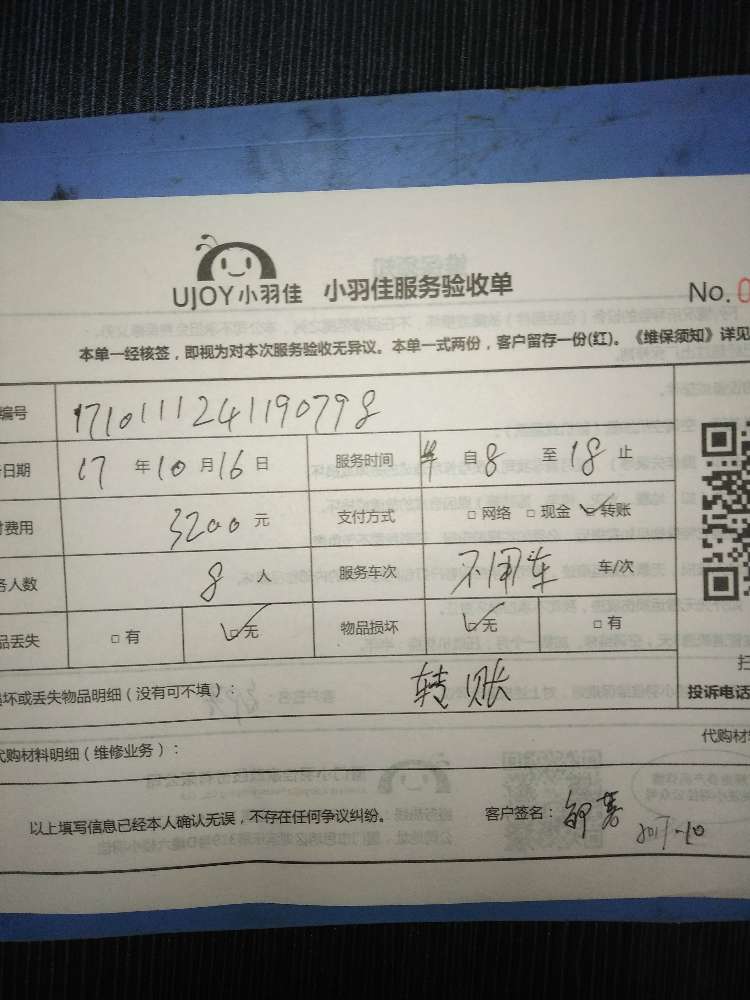 UJOY小羽佳 小羽佳服务验收单 No.0
本单一经核签，即视为对本次服务验收无异议。本单一式两份，客户留存一份(红)。《维保须知》详见
编号 1710111241190798
日期 17 年 10 月 16 日 服务时间 自 8 至 18 止
费用 3200 元 支付方式 网络 现金 转账
人数 8 人 服务车次 不用车 车/次
品丢失 有 无 物品损坏 无 有
损坏或丢失物品明细（没有可不填）： 转账
投诉电话
代购材料明细（维修业务）： 代购材
以上填写信息已经本人确认无误，不存在任何争议纠纷。 客户签名：
2017-10